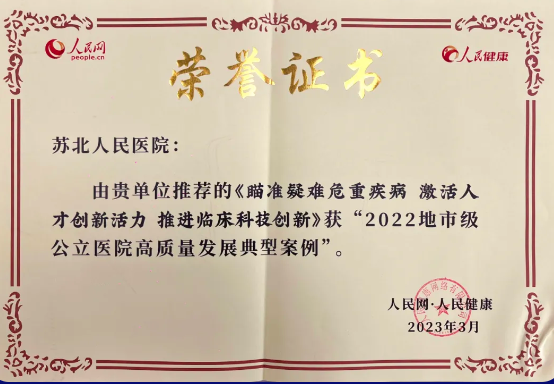 人民网
people.cn
人民健康
荣誉证书
苏北人民医院：
由贵单位推荐的《瞄准疑难危重疾病 激活人
才创新活力 推进临床科技创新》获“2022地市级
公立医院高质量发展典型案例”。
人民网·人民健康
2023年3月